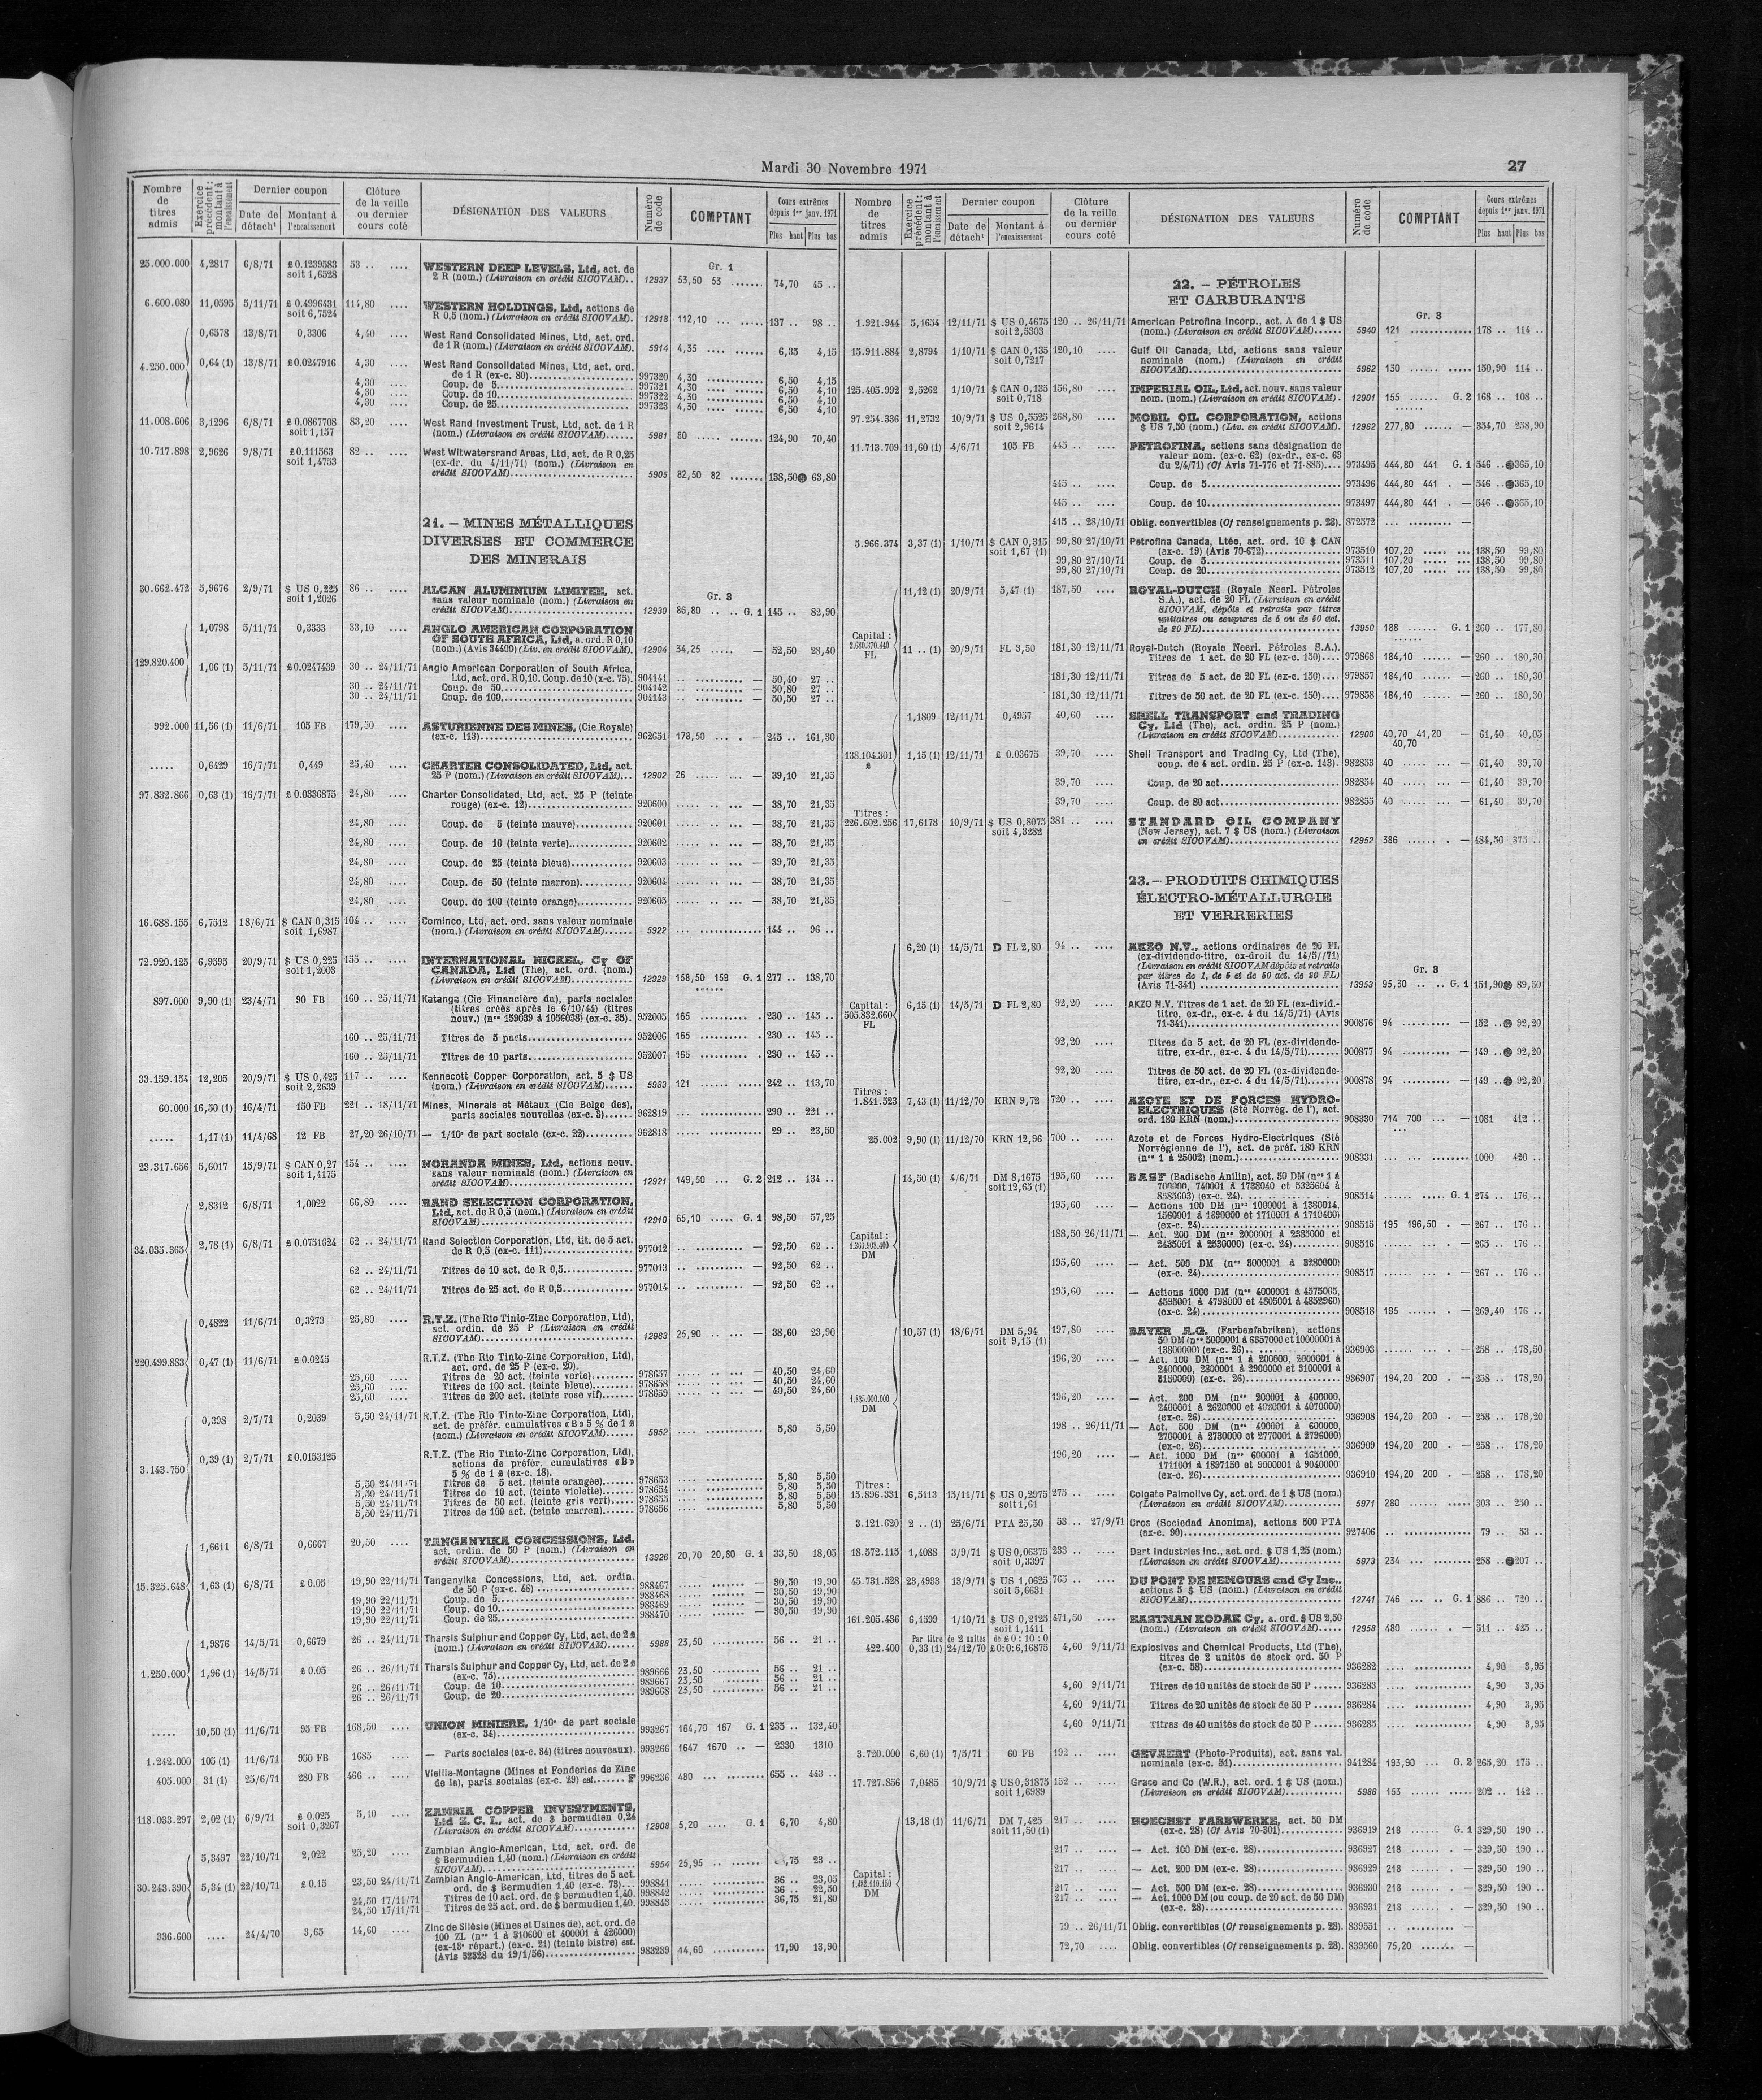 Mardi 30 Novembre 1971
27
Nombre de titres admis
Exercice précédent : montant à l'encaissement
Dernier coupon
Date de détacht
Montant à l'encaissement
Clôture de la veille ou dernier cours coté
DÉSIGNATION DES VALEURS
Numéro de code
COMPTANT
Cours extrêmes depuis 1er janv. 1971
Plus haut
Plus bas
Gr. 1
25.000.000 4,2817 6/8/71 £ 0.1239583 53 .. .... WESTERN DEEP LEVELS, Ltd, act. de
soit 1,6528 2 R (nom.) (Livraison en crédit SICOVAM).. 12937 53,50 53 ....... 74,70 45 ..
6.600.080 11,0595 5/11/71 £ 0.4996431 114,80 .... WESTERN HOLDINGS, Ltd, actions de
soit 6,7524 R 0,5 (nom.) (Livraison en crédit SICOVAM). 12918 112,10 ... ..... 137 .. 98 ..
0,6578 13/8/71 0,3306 4,40 .... West Rand Consolidated Mines, Ltd, act. ord.
de 1 R (nom.) (Livraison en crédit SICOVAM). 5914 4,35 .... ...... 6,35 4,15
4.250.000 0,64 (1) 13/8/71 £0.0247916 4,30 .... West Rand Consolidated Mines, Ltd, act. ord.
de 1 R (ex-c. 80)..... 997320 4,30 6,50 4,15
4,30 .... Coup. de 5..... 997321 4,30 6,50 4,10
4,30 .... Coup. de 10..... 997322 4,30 6,50 4,10
4,30 .... Coup. de 25..... 997323 4,30 6,50 4,10
11.008.606 3,1296 6/8/71 £ 0.0867708 83,20 .... West Rand Investment Trust, Ltd, act. de 1 R
soit 1,157 (nom.) (Livraison en crédit SICOVAM)...... 5981 80 ..... ....... 124,90 70,40
10.717.898 2,9626 9/8/71 £0.111563 82 .. .... West Witwatersrand Areas, Ltd, act. de R 0,25
soit 1,4753 (ex-dr. du 4/11/71) (nom.) (Livraison en
crédit SICOVAM)..... 5905 82,50 82 ....... 138,50 63,80
21. – MINES MÉTALLIQUES
DIVERSES ET COMMERCE
DES MINERAIS
Gr. 3
30.662.472 5,9676 2/9/71 $ US 0,225 86 .. .... ALCAN ALUMINIUM LIMITEE, act.
soit 1,2026 sans valeur nominale (nom.) (Livraison en
crédit SICOVAM)..... 12930 86,80 .. .. G. 1 145 .. 82,90
1,0798 5/11/71 0,3333 33,10 .... ANGLO AMERICAN CORPORATION
OF SOUTH AFRICA, Ltd, a. ord. R 0,10
(nom.) (Avis 34400) (Liv. en crédit SICOVAM). 12904 34,25 ..... — 52,50 28,40
129.820.400 1,06 (1) 5/11/71 £0.0247439 30 .. 24/11/71 Anglo American Corporation of South Africa,
Ltd, act. ord. R 0,10. Coup. de 10 (x-c. 75). 904141 — 50,40 27 ..
30 .. 24/11/71 Coup. de 50..... 904142 — 50,80 27 ..
30 .. 24/11/71 Coup. de 100..... 904143 — 50,50 27 ..
992.000 11,56 (1) 11/6/71 105 FB 179,50 .... ASTURIENNE DES MINES, (Cie Royale)
(ex-c. 113)..... 962651 178,50 ... . — 245 .. 161,30
..... 0,6429 16/7/71 0,449 25,40 .... CHARTER CONSOLIDATED, Ltd, act.
25 P (nom.) (Livraison en crédit SICOVAM)... 12902 26 ..... ... — 39,10 21,35
97.832.866 0,63 (1) 16/7/71 £ 0.0336875 24,80 .... Charter Consolidated, Ltd, act. 25 P (teinte
rouge) (ex-c. 12)..... 920600 — 38,70 21,35
24,80 .... Coup. de 5 (teinte mauve)..... 920601 — 38,70 21,35
24,80 .... Coup. de 10 (teinte verte)..... 920602 — 38,70 21,35
24,80 .... Coup. de 25 (teinte bleue)..... 920603 — 39,70 21,35
24,80 .... Coup. de 50 (teinte marron)..... 920604 — 38,70 21,35
24,80 .... Coup. de 100 (teinte orange)..... 920605 — 38,70 21,35
16.688.155 6,7512 18/6/71 $ CAN 0,315 104 .. .... Cominco, Ltd, act. ord. sans valeur nominale
soit 1,6987 (nom.) (Livraison en crédit SICOVAM)...... 5922 144 .. 96 ..
72.920.125 6,9595 20/9/71 $ US 0,225 155 .. .... INTERNATIONAL NICKEL, Cy OF
soit 1,2003 CANADA, Ltd (The), act. ord. (nom.)
(Livraison en crédit SICOVAM)..... 12929 158,50 159 G. 1 277 .. 138,70
897.000 9,90 (1) 23/4/71 90 FB 160 .. 25/11/71 Katanga (Cie Financière du), parts sociales
(titres créés après le 6/10/44) (titres
nouv.) (nos 159039 à 1056038) (ex-c. 35). 952005 165 230 .. 145 ..
160 .. 25/11/71 Titres de 5 parts..... 952006 165 230 .. 145 ..
160 .. 25/11/71 Titres de 10 parts..... 952007 165 230 .. 145 ..
33.159.154 12,205 20/9/71 $ US 0,425 117 .. .... Kennecott Copper Corporation, act. 5 $ US
soit 2,2639 (nom.) (Livraison en crédit SICOVAM)...... 5963 121 242 .. 113,70
60.000 16,50 (1) 16/4/71 150 FB 221 .. 18/11/71 Mines, Minerais et Métaux (Cie Belge des),
parts sociales nouvelles (ex-c. 3)...... 962819 290 .. 221 ..
..... 1,17 (1) 11/4/68 12 FB 27,20 26/10/71 — 1/10e de part sociale (ex-c. 22)..... 962818 29 .. 23,50
23.317.656 5,6017 15/9/71 $ CAN 0,27 154 .. .... NORANDA MINES, Ltd, actions nouv.
soit 1,4175 sans valeur nominale (nom.) (Livraison en
crédit SICOVAM)..... 12921 149,50 ... G. 2 212 .. 134 ..
2,8312 6/8/71 1,0022 66,80 .... RAND SELECTION CORPORATION,
Ltd, act. de R 0,5 (nom.) (Livraison en crédit
SICOVAM)..... 12910 65,10 ..... G. 1 98,50 57,25
34.035.365 2,78 (1) 6/8/71 £ 0.0751624 62 .. 24/11/71 Rand Selection Corporation, Ltd, tit. de 5 act.
de R 0,5 (ex-c. 111)..... 977012 — 92,50 62 ..
62 .. 24/11/71 Titres de 10 act. de R 0,5..... 977013 — 92,50 62 ..
62 .. 24/11/71 Titres de 25 act. de R 0,5..... 977014 — 92,50 62 ..
0,4822 11/6/71 0,3273 25,80 .... R.T.Z. (The Rio Tinto-Zinc Corporation, Ltd),
act. ordin. de 25 P (Livraison en crédit
SICOVAM)..... 12963 25,90 .. ... — 38,60 23,90
220.499.883 0,47 (1) 11/6/71 £ 0.0245 R.T.Z. (The Rio Tinto-Zinc Corporation, Ltd),
act. ord. de 25 P (ex-c. 20).
25,60 .... Titres de 20 act. (teinte verte)..... 978657 — 40,50 24,60
25,60 .... Titres de 100 act. (teinte bleue)..... 978658 — 40,50 24,60
25,60 .... Titres de 200 act. (teinte rose vif)... 978659 — 40,50 24,60
0,398 2/7/71 0,2039 5,50 24/11/71 R.T.Z. (The Rio Tinto-Zinc Corporation, Ltd),
act. de préfér. cumulatives « B » 5 % de 1 £
(nom.) (Livraison en crédit SICOVAM)...... 5952 5,80 5,50
3.143.750 0,39 (1) 2/7/71 £0.0153125 R.T.Z. (The Rio Tinto-Zinc Corporation, Ltd),
actions de préfér. cumulatives « B »
5 % de 1 £ (ex-c. 18).
5,50 24/11/71 Titres de 5 act. (teinte orangée)....... 978653 5,80 5,50
5,50 24/11/71 Titres de 10 act. (teinte violette)....... 978654 5,80 5,50
5,50 24/11/71 Titres de 50 act. (teinte gris vert)...... 978655 5,80 5,50
5,50 24/11/71 Titres de 100 act. (teinte marron)....... 978656 5,80 5,50
1,6611 6/8/71 0,6667 20,50 .... TANGANYIKA CONCESSIONS, Ltd,
act. ordin. de 50 P (nom.) (Livraison en
crédit SICOVAM)..... 13926 20,70 20,80 G. 1 33,50 18,05
15.325.648 1,63 (1) 6/8/71 £ 0.05 19,90 22/11/71 Tanganyika Concessions, Ltd, act. ordin.
de 50 P (ex-c. 48)..... 988467 — 30,50 19,90
19,90 22/11/71 Coup. de 5..... 988468 — 30,50 19,90
19,90 22/11/71 Coup. de 10..... 988469 — 30,50 19,90
19,90 22/11/71 Coup. de 25..... 988470 — 30,50 19,90
1,9876 14/5/71 0,6679 26 .. 24/11/71 Tharsis Sulphur and Copper Cy, Ltd, act. de 2 £
(nom.) (Livraison en crédit SICOVAM)...... 5988 23,50 56 .. 21 ..
1.250.000 1,96 (1) 14/5/71 £ 0.05 26 .. 26/11/71 Tharsis Sulphur and Copper Cy, Ltd, act. de 2 £
(ex-c. 75)..... 989666 23,50 56 .. 21 ..
26 .. 26/11/71 Coup. de 10..... 989667 23,50 56 .. 21 ..
26 .. 26/11/71 Coup. de 20..... 989668 23,50 56 .. 21 ..
..... 10,50 (1) 11/6/71 95 FB 168,50 .... UNION MINIERE, 1/10e de part sociale
(ex-c. 34)..... 993267 164,70 167 G. 1 235 .. 132,40
1.242.000 105 (1) 11/6/71 950 FB 1685 .... — Parts sociales (ex-c. 34) (titres nouveaux). 993266 1647 1670 .. — 2330 1310
405.000 31 (1) 25/6/71 280 FB 466 .. .... Vieille-Montagne (Mines et Fonderies de Zinc
de la), parts sociales (ex-c. 29) est....... F 996236 480 655 .. 443 ..
118.033.297 2,02 (1) 6/9/71 £ 0.025 5,10 .... ZAMBIA COPPER INVESTMENTS,
soit 0,3267 Ltd Z. C. I., act. de $ bermudien 0,24
(Livraison en crédit SICOVAM)..... 12908 5,20 .... G. 1 6,70 4,80
5,3497 22/10/71 2,022 25,20 .... Zambian Anglo-American, Ltd, act. ord. de
$ Bermudien 1,40 (nom.) (Livraison en crédit
SICOVAM)..... 5954 25,95 ,75 23 ..
30.243.390 5,34 (1) 22/10/71 £ 0.15 23,50 24/11/71 Zambian Anglo-American, Ltd, titres de 5 act.
ord. de $ Bermudien 1,40 (ex-c. 73)... 998841 36 .. 23,05
24,50 17/11/71 Titres de 10 act. ord. de $ bermudien 1,40. 998842 36 .. 22,50
24,50 17/11/71 Titres de 25 act. ord. de $ bermudien 1,40. 998843 36,75 21,80
336.600 .... 24/4/70 3,65 14,60 .... Zinc de Silésie (Mines et Usines de), act. ord. de
100 ZL (nos 1 à 310600 et 400001 à 426000)
(ex-13e répart.) (ex-c. 21) (teinte bistre) est.
(Avis 32328 du 19/1/56)..... 983239 14,60 17,90 13,90
Nombre de titres admis
Exercice précédent : montant à l'encaissement
Dernier coupon
Date de détacht
Montant à l'encaissement
Clôture de la veille ou dernier cours coté
DÉSIGNATION DES VALEURS
Numéro de code
COMPTANT
Cours extrêmes depuis 1er janv. 1971
Plus haut
Plus bas
22. – PÉTROLES
ET CARBURANTS
Gr. 3
1.921.944 5,1654 12/11/71 $ US 0,4675 120 .. 26/11/71 American Petrofina Incorp., act. A de 1 $ US
soit 2,5303 (nom.) (Livraison en crédit SICOVAM)...... 5940 121 178 .. 114 ..
15.911.884 2,8794 1/10/71 $ CAN 0,135 120,10 .... Gulf Oil Canada, Ltd, actions sans valeur
soit 0,7217 nominale (nom.) (Livraison en crédit
SICOVAM)..... 5962 130 150,90 114 ..
125.405.992 2,5262 1/10/71 $ CAN 0,135 156,80 .... IMPERIAL OIL, Ltd, act. nouv. sans valeur
soit 0,718 nom. (nom.) (Livraison en crédit SICOVAM). 12901 155 ...... G. 2 168 .. 108 ..
97.254.336 11,2732 10/9/71 $ US 0,5525 268,80 .... MOBIL OIL CORPORATION, actions
soit 2,9614 $ US 7,50 (nom.) (Liv. en crédit SICOVAM). 12962 277,80 ...... — 354,70 258,90
11.713.709 11,60 (1) 4/6/71 105 FB 445 .. .... PETROFINA, actions sans désignation de
valeur nom. (ex-c. 62) (ex-dr., ex-c. 63
du 2/4/71) (Cf Avis 71-776 et 71-885).... 973495 444,80 441 G. 1 546 .. 365,10
445 .. .... Coup. de 5..... 973496 444,80 441 . — 546 .. 365,10
445 .. .... Coup. de 10..... 973497 444,80 441 . — 546 .. 365,10
415 .. 28/10/71 Oblig. convertibles (Cf renseignements p. 28). 872572 —
5.966.374 3,37 (1) 1/10/71 $ CAN 0,315 99,80 27/10/71 Petrofina Canada, Ltée, act. ord. 10 $ CAN
soit 1,67 (1) (ex-c. 19) (Avis 70-672)..... 973510 107,20 138,50 99,80
99,80 27/10/71 Coup. de 5..... 973511 107,20 138,50 99,80
99,80 27/10/71 Coup. de 20..... 973512 107,20 138,50 99,80
Capital : 2.680.370.440 FL
11,12 (1) 20/9/71 5,47 (1) 187,50 .... ROYAL-DUTCH (Royale Neerl. Pétroles
S.A.), act. de 20 FL (Livraison en crédit
SICOVAM, dépôts et retraits par titres
unitaires ou coupures de 5 ou de 50 act.
de 20 FL)..... 13950 188 ...... G. 1 260 .. 177,80
11 .. (1) 20/9/71 FL 3,50 181,30 12/11/71 Royal-Dutch (Royale Neerl. Pétroles S.A.).
Titres de 1 act. de 20 FL (ex-c. 150).... 979868 184,10 ...... — 260 .. 180,30
181,30 12/11/71 Titres de 5 act. de 20 FL (ex-c. 150).... 979857 184,10 ...... — 260 .. 180,30
181,30 12/11/71 Titres de 50 act. de 20 FL (ex-c. 150).... 979858 184,10 ...... — 260 .. 180,30
1,1809 12/11/71 0,4957 40,60 .... SHELL TRANSPORT and TRADING
Cy, Ltd (The), act. ordin. 25 P (nom.)
(Livraison en crédit SICOVAM)..... 12900 40,70 41,20 — 61,40 40,05
40,70
138.104.301 £ 1,15 (1) 12/11/71 £ 0.03675 39,70 .... Shell Transport and Trading Cy, Ltd (The),
coup. de 4 act. ordin. 25 P (ex-c. 143). 982853 40 — 61,40 39,70
39,70 .... Coup. de 20 act..... 982854 40 — 61,40 39,70
39,70 .... Coup. de 80 act..... 982855 40 — 61,40 39,70
Titres :
226.602.256 17,6178 10/9/71 $ US 0,8075 381 .. .... STANDARD OIL COMPANY
soit 4,3282 (New Jersey), act. 7 $ US (nom.) (Livraison
en crédit SICOVAM)..... 12952 386 ...... . — 484,50 375 ..
23. – PRODUITS CHIMIQUES
ÉLECTRO-MÉTALLURGIE
ET VERRERIES
Gr. 3
6,20 (1) 14/5/71 D FL 2,80 94 .. .... AKZO N.V., actions ordinaires de 20 FL
(ex-dividende-titre, ex-droit du 14/5//71)
(Livraison en crédit SICOVAM dépôts et retraits
par titres de 1, de 5 et de 50 act. de 20 FL)
(Avis 71-341)..... 13953 95,30 .. .. G. 1 151,90 89,50
Capital : 505.832.660 FL
6,15 (1) 14/5/71 D FL 2,80 92,20 .... AKZO N.V. Titres de 1 act. de 20 FL (ex-divid.-
titre, ex-dr., ex-c. 4 du 14/5/71) (Avis
71-341)..... 900876 94 — 152 .. 92,20
92,20 .... Titres de 5 act. de 20 FL (ex-dividende-
titre, ex-dr., ex-c. 4 du 14/5/71)....... 900877 94 — 149 .. 92,20
92,20 .... Titres de 50 act. de 20 FL (ex-dividende-
titre, ex-dr., ex-c. 4 du 14/5/71)....... 900878 94 — 149 .. 92,20
Titres :
1.841.523 7,43 (1) 11/12/70 KRN 9,72 720 .. .... AZOTE ET DE FORCES HYDRO-
ELECTRIQUES (Sté Norvég. de l'), act.
ord. 180 KRN (nom.)..... 908330 714 700 ... — 1081 412 ..
25.002 9,90 (1) 11/12/70 KRN 12,96 700 .. .... Azote et de Forces Hydro-Electriques (Sté
Norvégienne de l'), act. de préf. 180 KRN
(nos 1 à 25002) (nom.)..... 908331 1000 420 ..
14,50 (1) 4/6/71 DM 8,1675 195,60 .... BASF (Badische Anilin), act. 50 DM (nos 1 à
soit 12,65 (1) 700000, 740001 à 1738040 et 5325604 à
8585603) (ex-c. 24)..... 908514 G. 1 274 .. 176 ..
195,60 .... — Actions 100 DM (nos 1000001 à 1380014,
1560001 à 1690000 et 1710001 à 1710400)
(ex-c. 24)..... 908515 195 196,50 . — 267 .. 176 ..
Capital : 1.360.908.400 DM
188,50 26/11/71 — Act. 200 DM (nos 2000001 à 2335000 et
2435001 à 2530000) (ex-c. 24)..... 908516 — 265 .. 176 ..
195,60 .... — Act. 500 DM (nos 3000001 à 3280000)
(ex-c. 24)..... 908517 — 267 .. 176 ..
195,60 .... — Actions 1000 DM (nos 4000001 à 4575005,
4595001 à 4798000 et 4805001 à 4852960)
(ex-c. 24)..... 908518 195 — 269,40 176 ..
10,57 (1) 18/6/71 DM 5,94 197,80 .... BAYER A.G. (Farbenfabriken), actions
soit 9,15 (1) 50 DM (nos 5000001 à 6357000 et 10000001 à
13800000) (ex-c. 26)..... 936903 — 258 .. 178,50
196,20 .... — Act. 100 DM (nos 1 à 200000, 2000001 à
2400000, 2800001 à 2900000 et 3100001 à
3150000) (ex-c. 26)..... 936907 194,20 200 . — 258 .. 178,20
1.835.000.000 DM
196,20 .... — Act. 200 DM (nos 200001 à 400000,
2400001 à 2620000 et 4020001 à 4070000)
(ex-c. 26)..... 936908 194,20 200 . — 258 .. 178,20
198 .. 26/11/71 — Act. 500 DM (nos 400001 à 600000,
2700001 à 2730000 et 2770001 à 2796000)
(ex-c. 26)..... 936909 194,20 200 . — 258 .. 178,20
196,20 .... — Act. 1000 DM (nos 600001 à 1651000,
1711001 à 1897150 et 9000001 à 9040000
(ex-c. 26)..... 936910 194,20 200 . — 258 .. 178,20
Titres :
15.896.331 6,5113 15/11/71 $ US 0,2975 275 .. .... Colgate Palmolive Cy, act. ord. de 1 $ US (nom.)
soit 1,61 (Livraison en crédit SICOVAM)..... 5971 280 303 .. 250 ..
3.121.620 2 .. (1) 25/6/71 PTA 25,50 53 .. 27/9/71 Cros (Sociedad Anonima), actions 500 PTA
(ex-c. 90)..... 927406 79 .. 53 ..
18.572.115 1,4088 3/9/71 $ US 0,06375 233 .. .... Dart Industries Inc., act. ord. $ US 1,25 (nom.)
soit 0,3397 (Livraison en crédit SICOVAM)..... 5973 234 258 .. 207 ..
45.731.528 23,4933 13/9/71 $ US 1,0625 765 .. .... DU PONT DE NEMOURS and Cy Inc.,
soit 5,6631 actions 5 $ US (nom.) (Livraison en crédit
SICOVAM)..... 12741 746 ... .. G. 1 886 .. 720 ..
161.205.436 6,1599 1/10/71 $ US 0,2125 471,50 .... EASTMAN KODAK Cy, a. ord. $ US 2,50
soit 1,1411 (nom.) (Livraison en crédit SICOVAM)..... 12958 480 ...... . — 511 .. 425 ..
Par titre de 2 unités de £ 0 : 10 : 0
422.400 0,33 (1) 24/12/70 £0:0:6,16875 4,60 9/11/71 Explosives and Chemical Products, Ltd (The),
titres de 2 unités de stock ord. 50 P
(ex-c. 58)..... 936282 4,90 3,95
4,60 9/11/71 Titres de 10 unités de stock de 50 P ...... 936283 4,90 3,95
4,60 9/11/71 Titres de 20 unités de stock de 50 P ...... 936284 4,90 3,95
4,60 9/11/71 Titres de 40 unités de stock de 50 P ...... 936285 4,90 3,95
3.720.000 6,60 (1) 7/5/71 60 FB 192 .. .... GEVAERT (Photo-Produits), act. sans val.
nominale (ex-c. 51)..... 941284 193,90 ... G. 2 265,20 175 ..
17.727.856 7,0485 10/9/71 $ US 0,31875 152 .. .... Grace and Co (W.R.), act. ord. 1 $ US (nom.)
soit 1,6989 (Livraison en crédit SICOVAM)..... 5986 153 202 .. 142 ..
13,18 (1) 11/6/71 DM 7,425 217 .. .... HOECHST FARBWERKE, act. 50 DM
soit 11,50 (1) (ex-c. 28) (Cf Avis 70-301)..... 936919 218 ...... G. 1 329,50 190 ..
217 .. .... — Act. 100 DM (ex-c. 28)..... 936927 218 ...... . — 329,50 190 ..
Capital : 1.482.110.150 DM
217 .. .... — Act. 200 DM (ex-c. 28)..... 936929 218 ...... . — 329,50 190 ..
217 .. .... — Act. 500 DM (ex-c. 28)..... 936930 218 ...... . — 329,50 190 ..
217 .. .... — Act. 1000 DM (ou coup. de 20 act. de 50 DM)
(ex-c. 28)..... 936931 218 ...... . — 329,50 190 ..
79 .. 26/11/71 Oblig. convertibles (Cf renseignements p. 28). 839551 —
72,70 .... Oblig. convertibles (Cf renseignements p. 28). 839560 75,20 ....... —